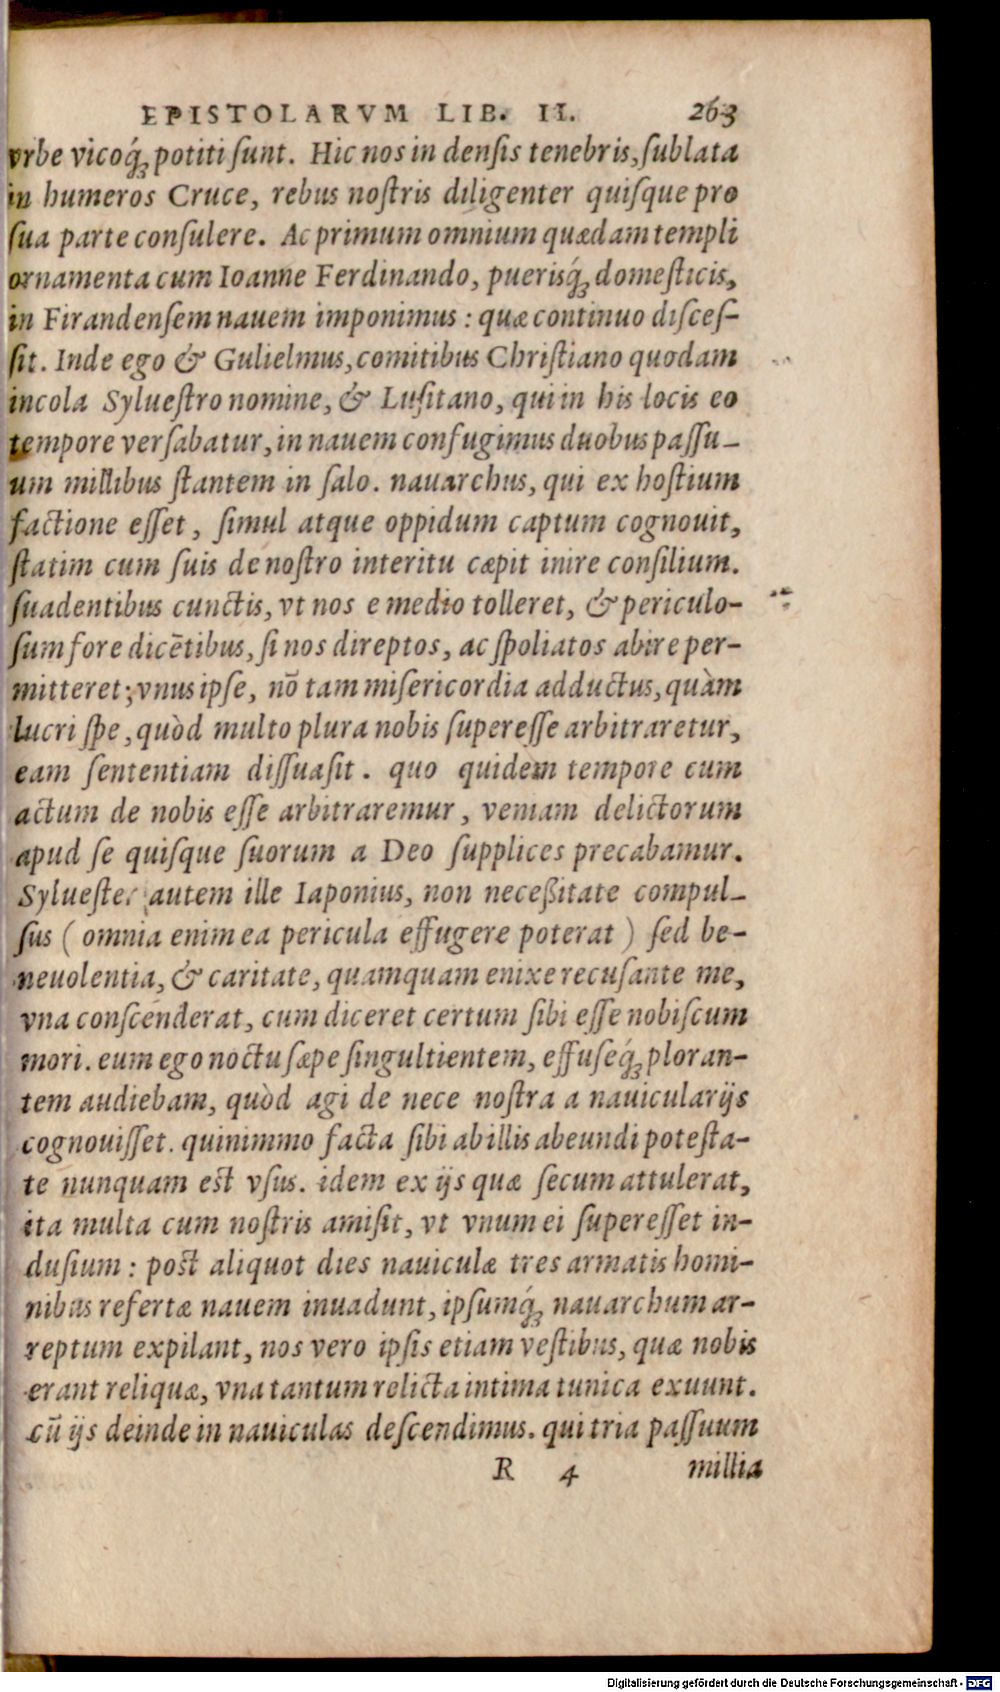 EPISTOLARVM LIB. II. 263
vrbe vicoq́; potiti ſunt. Hic nos in denſis tenebris, ſublata
in humeros Cruce, rebus noſtris diligenter quiſque pro
ſua parte conſulere. Ac primum omnium quædam templi
ornamenta cum Ioanne Ferdinando, puerisq́; domeſticis,
in Firandenſem nauem imponimus : quæ continuo diſceſ-
ſit. Inde ego & Gulielmus, comitibus Chriſtiano quodam
incola Sylueſtro nomine, & Luſitano, qui in his locis eo
tempore verſabatur, in nauem confugimus duobus paſſu-
um millibus ſtantem in ſalo. nauarchus, qui ex hoſtium
factione eſſet, ſimul atque oppidum captum cognouit,
ſtatim cum ſuis de noſtro interitu cœpit inire conſilium.
ſuadentibus cunctis, vt nos e medio tolleret, & periculo-
ſum fore dicẽtibus, ſi nos direptos, ac ſpoliatos abire per-
mitteret; vnus ipſe, nõ tam miſericordia adductus, quàm
lucri ſpe, quòd multo plura nobis ſupereſſe arbitraretur,
eam ſententiam diſſuaſit. quo quidem tempore cum
actum de nobis eſſe arbitraremur, veniam delictorum
apud ſe quiſque ſuorum a Deo ſupplices precabamur.
Sylueſter autem ille Iaponius, non neceßitate compul-
ſus ( omnia enim ea pericula effugere poterat ) ſed be-
neuolentia, & caritate, quamquam enixe recuſante me,
vna conſcenderat, cum diceret certum ſibi eſſe nobiſcum
mori. eum ego noctu ſæpe ſingultientem, effuſeq́; ploran-
tem audiebam, quòd agi de nece noſtra a nauicularijs
cognouiſſet. quinimmo facta ſibi ab illis abeundi poteſta-
te nunquam eſt vſus. idem ex ijs quæ ſecum attulerat,
ita multa cum noſtris amiſit, vt vnum ei ſupereſſet in-
duſium : poſt aliquot dies nauiculæ tres armatis homi-
nibus refertæ nauem inuadunt, ipſumq́; nauarchum ar-
reptum expilant, nos vero ipſis etiam veſtibus, quæ nobis
erant reliquæ, vna tantum relicta intima tunica exuunt.
cũ ijs deinde in nauiculas deſcendimus. qui tria paſſuum
R 4 millia
Digitalisierung gefördert durch die Deutsche Forschungsgemeinschaft - DFG